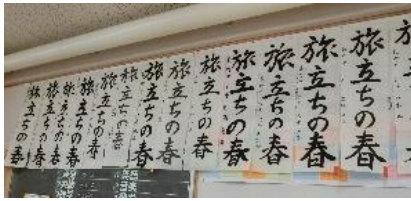 旅立ちの春
旅立ちの春
旅立ちの春
旅立ちの春
旅立ちの春
旅立ちの春
旅立ちの春
旅立ちの春
旅立ちの春
旅立ちの春
旅立ちの春
旅立ちの春
旅立ちの春